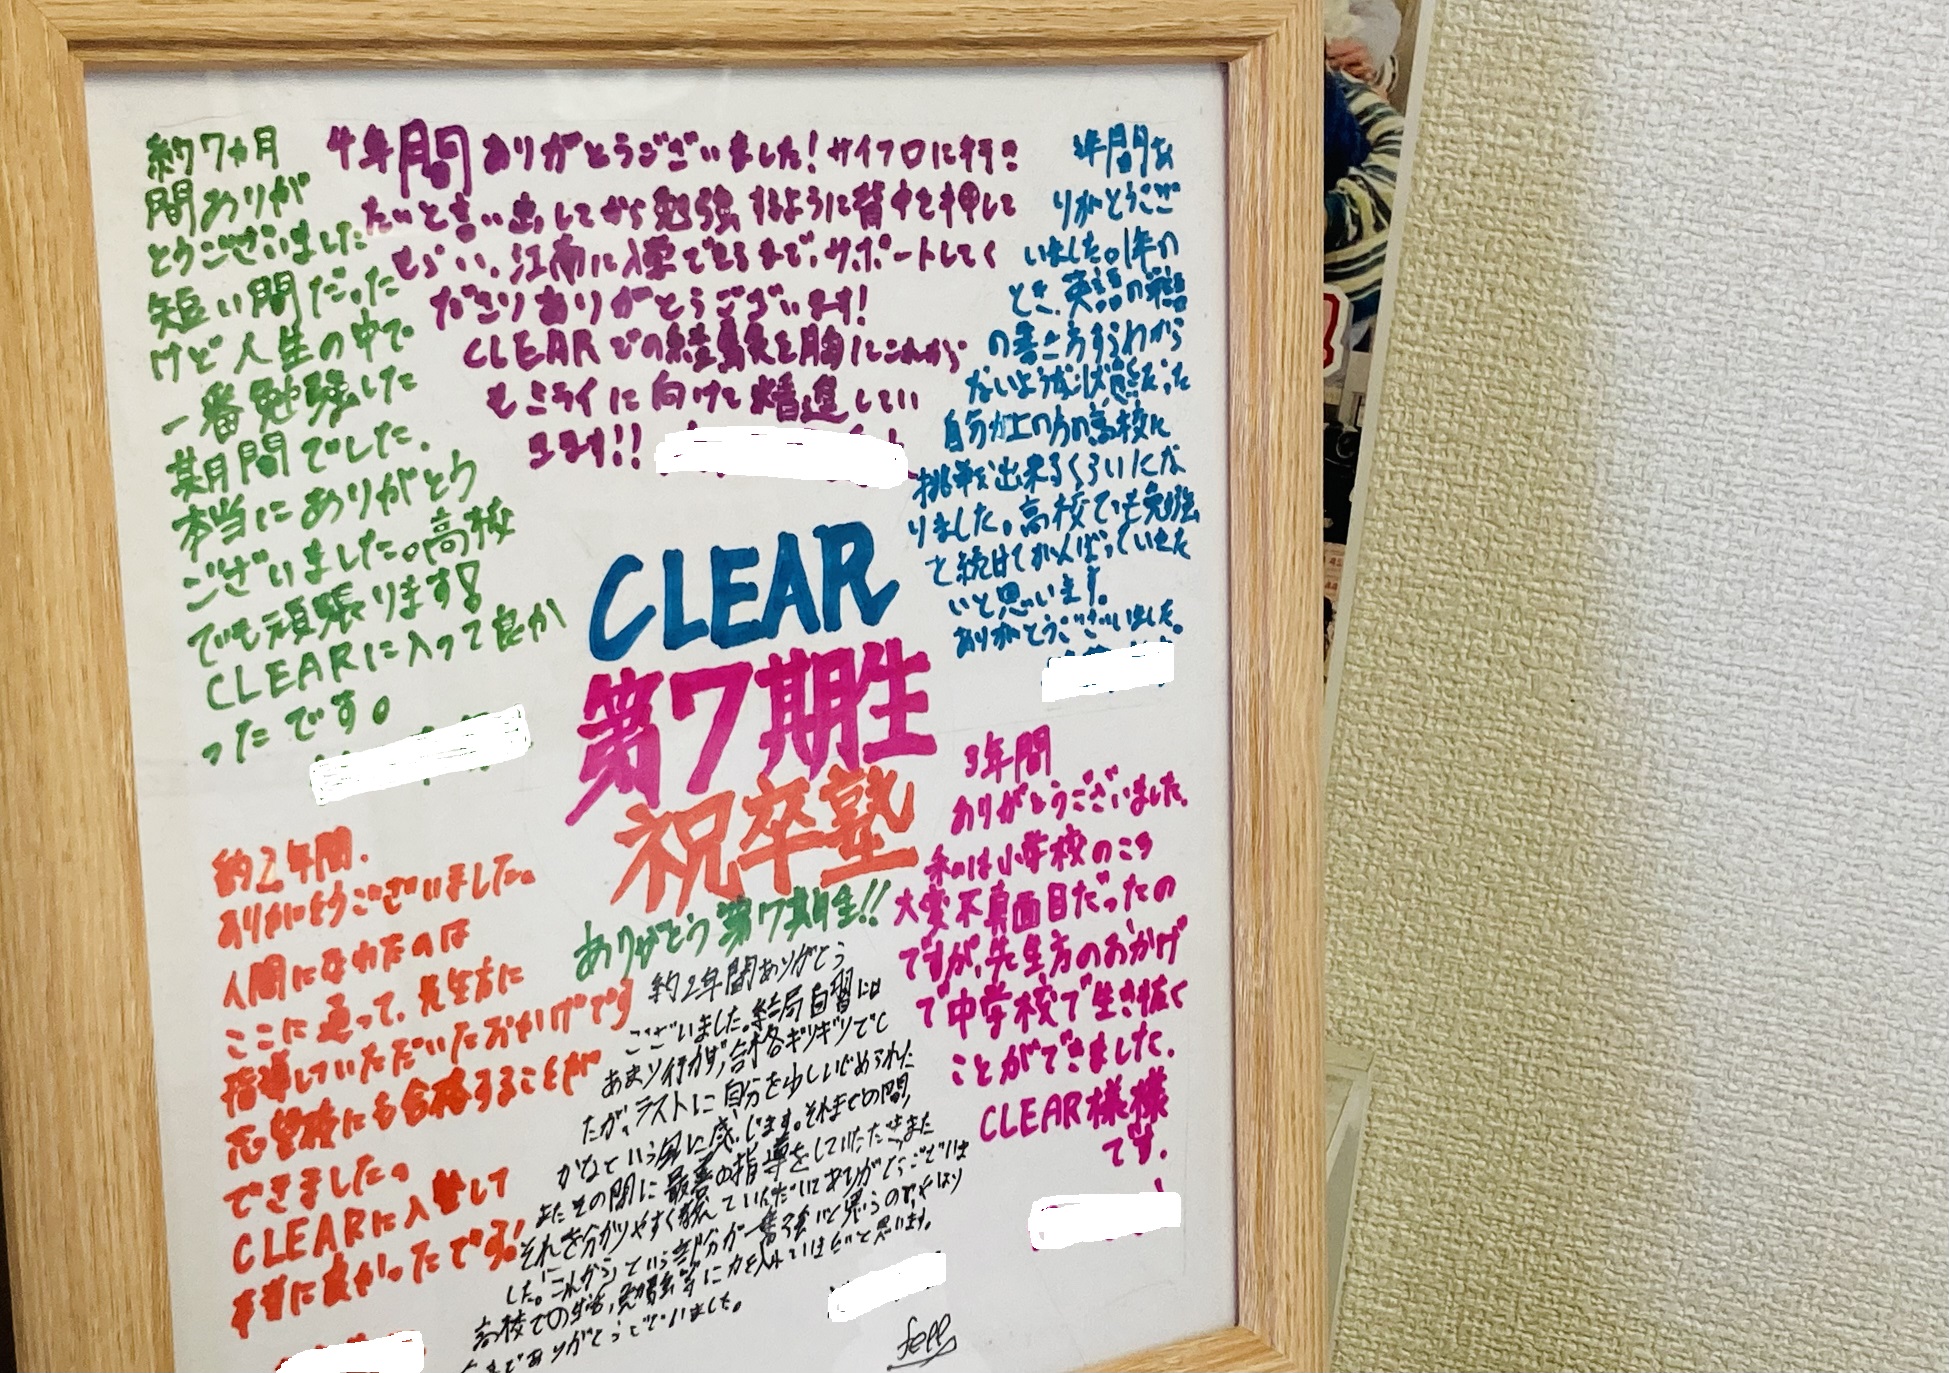 約7ヵ月
間ありが
とうございました
短い間だった
けど人生の中で
一番勉強した
期間でした。
本当にありがとう
ございました。高校
でも頑張ります!
CLEARに入って良か
ったです。
4年間ありがとうございました!サイフロに行き
たいと言い出してから勉強するように背中を押して
もらい、江南に入学できるまで、サポートしてく
ださりありがとうございます!
CLEARでの経験を胸にこれから
もミライに向けて精進してい
きます!!
年間あ
りがとうござ
いました。1年の
とき、英語の単語
の書き方すらわから
ないような状態だった
自分が上の方の高校に
挑戦出来るくらいにな
りました。高校でも勉強
を続けてがんばっていきた
いと思います。
ありがとうございました。
CLEAR
第7期生
祝卒塾
ありがとう第7期生!!
3年間
ありがとうございました。
私は小学校のころ
大変不真面目だったの
ですが、先生方のおかげ
で中学校で生き抜く
ことができました。
CLEAR様様
です。
約2年間、
ありがとうございました。
人間になれたのは
ここに通って、先生方に
指導していただいたおかげです
志望校にも合格することが
できました。
CLEARに入塾して
本当に良かったです!
約2年間ありがとう
ございました。結局自習には
あまり行かず、合格ギリギリでし
たが、ラストに自分を少しいじめられた
かなという風に感じます。それまでの間、
またその間に最善の指導をしていただき、また
それを分かりやすく教えていただいてありがとうございま
した。これからという部分が一番強いと思うのでやはり
高校での生活、勉強等に力を入れていければと思います。
ありがとうございました。